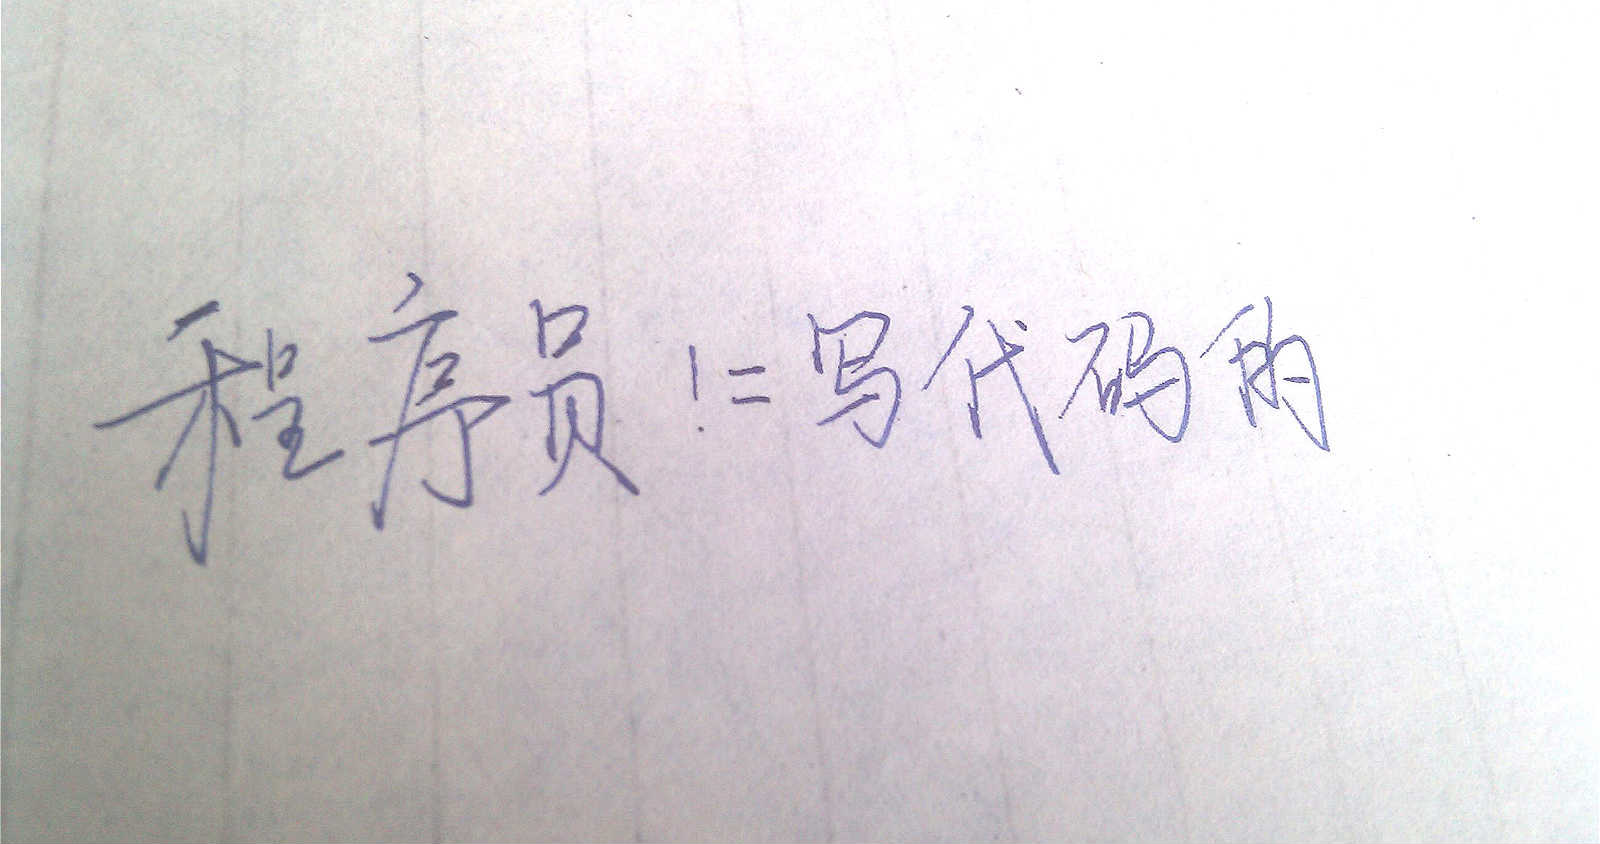 程序员!=写代码的